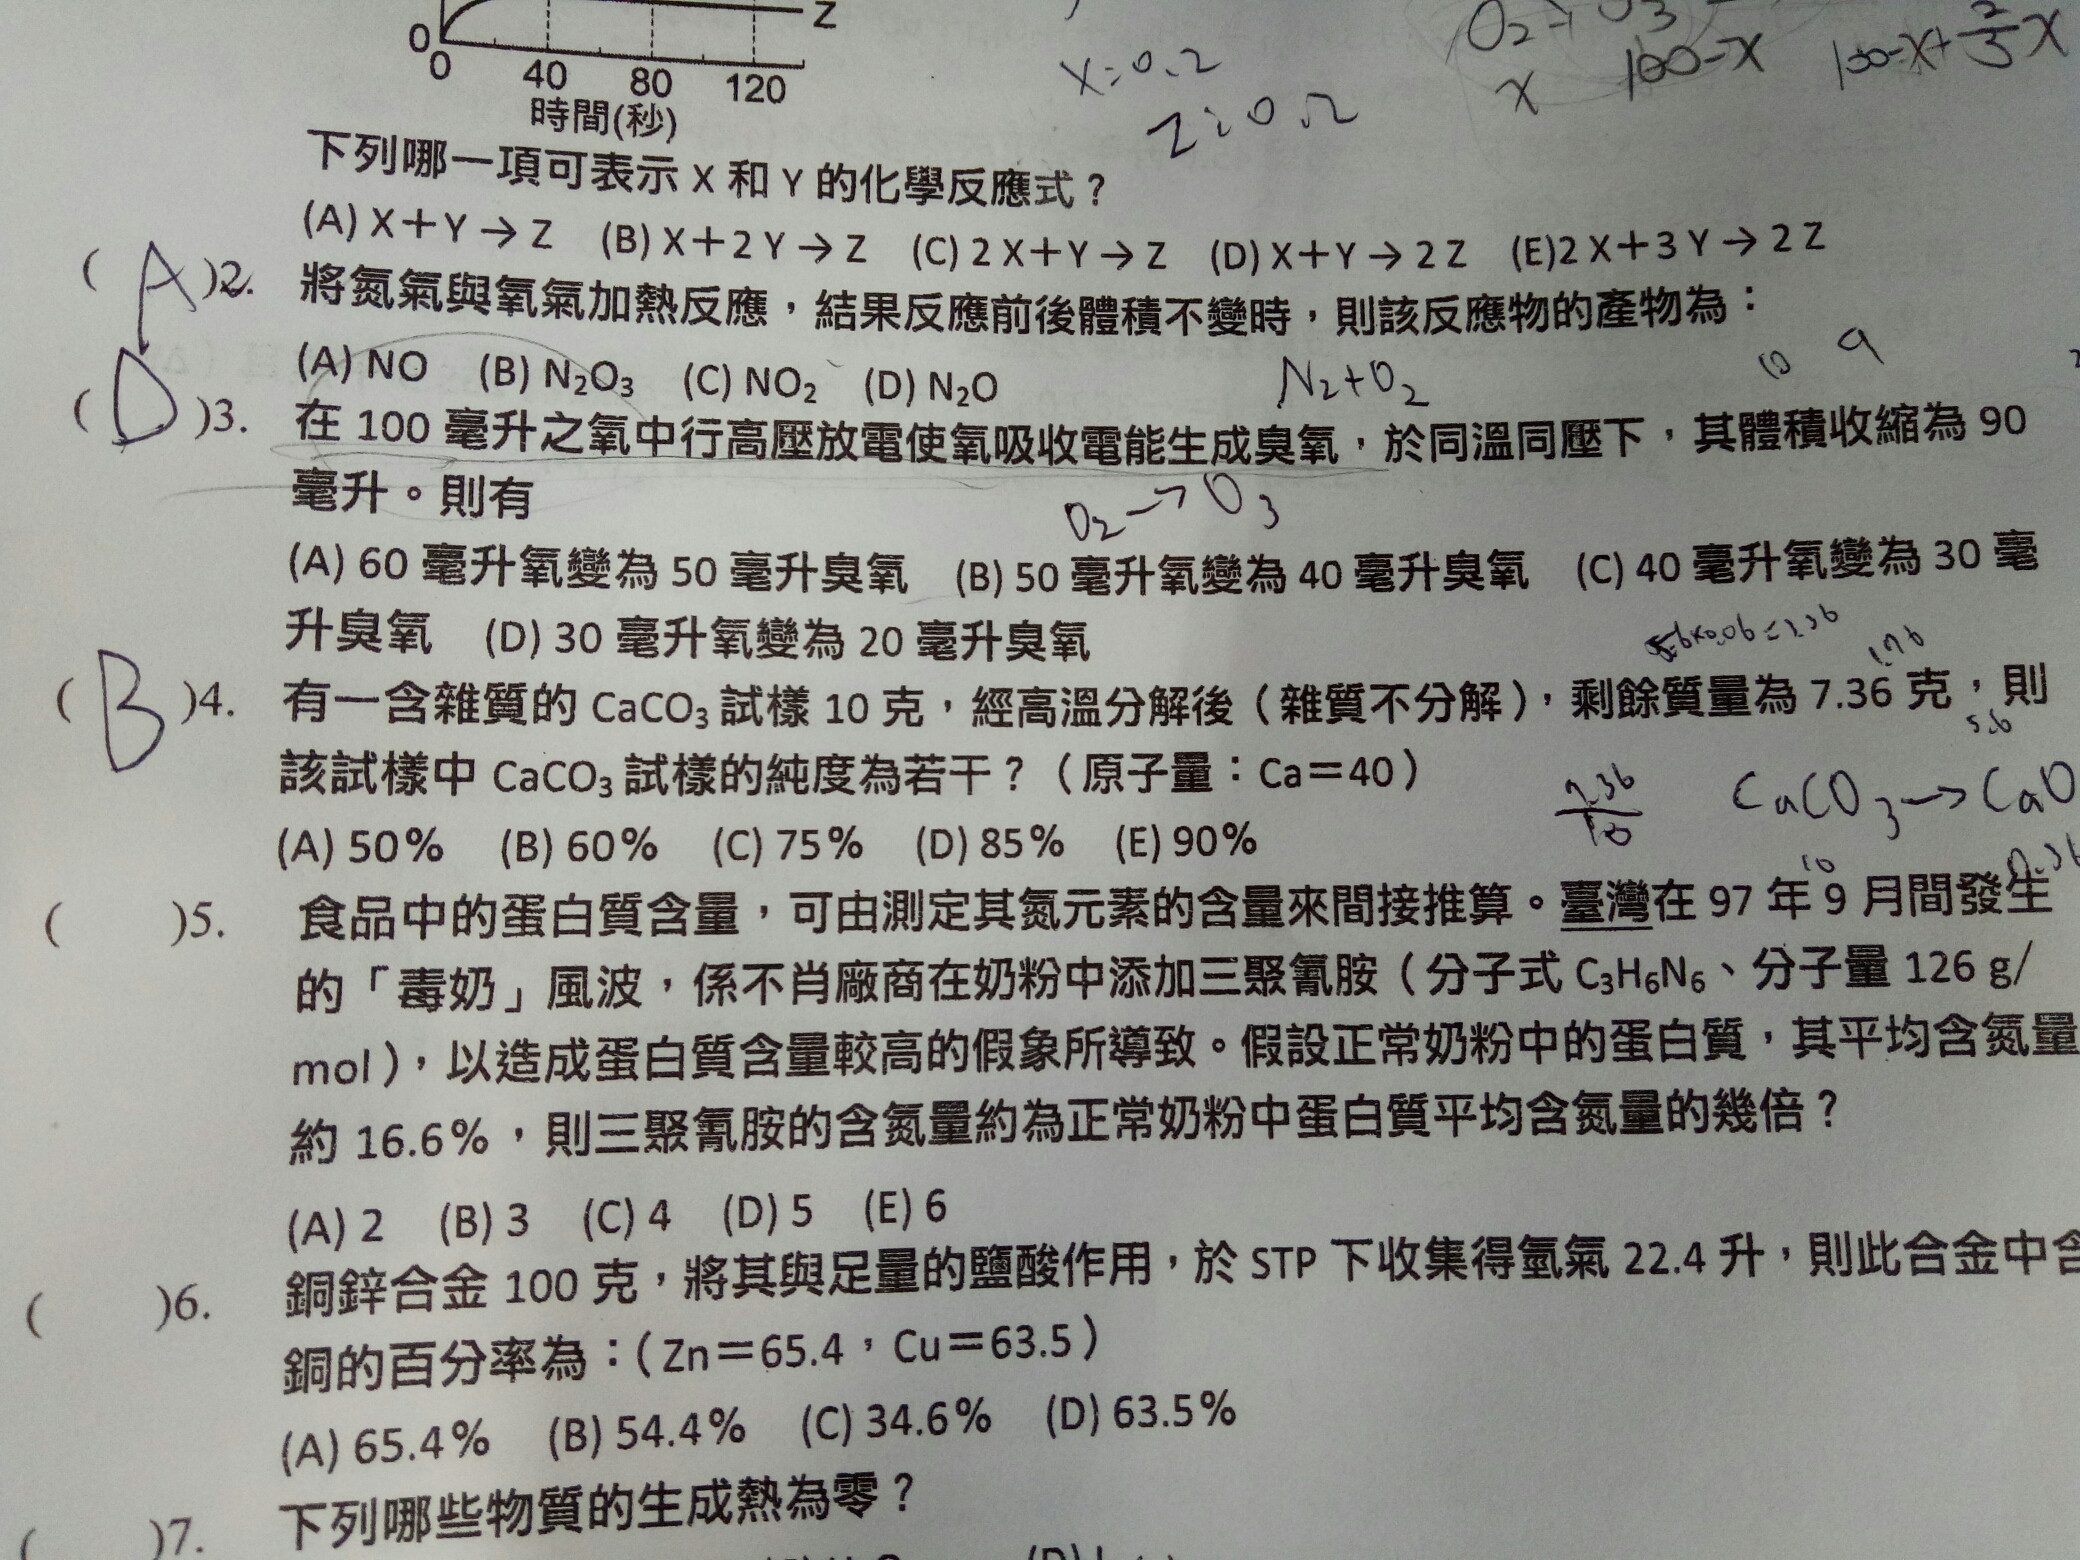 Z
0
0 40 80 120
時間(秒)
x=0.2
Z=0.2
x 100-x 100-x+2/3x
下列哪一項可表示 X 和 Y 的化學反應式？
(A) X＋Y → Z (B) X＋2 Y → Z (C) 2 X＋Y → Z (D) X＋Y → 2 Z (E)2 X＋3 Y → 2 Z
( A )2. 將氮氣與氧氣加熱反應，結果反應前後體積不變時，則該反應物的產物為：
(A) NO (B) N₂O₃ (C) NO₂ (D) N₂O
N₂+O₂
( D )3. 在 100 毫升之氧中行高壓放電使氧吸收電能生成臭氧，於同溫同壓下，其體積收縮為 90
毫升。則有
O₂→O₃
(A) 60 毫升氧變為 50 毫升臭氧 (B) 50 毫升氧變為 40 毫升臭氧 (C) 40 毫升氧變為 30 毫
升臭氧 (D) 30 毫升氧變為 20 毫升臭氧
( B )4. 有一含雜質的 CaCO₃ 試樣 10 克，經高溫分解後（雜質不分解），剩餘質量為 7.36 克，則
5.6
該試樣中 CaCO₃ 試樣的純度為若干？（原子量：Ca＝40）
CaCO₃→CaO
(A) 50% (B) 60% (C) 75% (D) 85% (E) 90%
10
( )5. 食品中的蛋白質含量，可由測定其氮元素的含量來間接推算。臺灣在 97 年 9 月間發生
的「毒奶」風波，係不肖廠商在奶粉中添加三聚氰胺（分子式 C₃H₆N₆、分子量 126 g/
mol），以造成蛋白質含量較高的假象所導致。假設正常奶粉中的蛋白質，其平均含氮量
約 16.6%，則三聚氰胺的含氮量約為正常奶粉中蛋白質平均含氮量的幾倍？
(A) 2 (B) 3 (C) 4 (D) 5 (E) 6
( )6. 銅鋅合金 100 克，將其與足量的鹽酸作用，於 STP 下收集得氫氣 22.4 升，則此合金中含
銅的百分率為：（Zn＝65.4，Cu＝63.5）
(A) 65.4% (B) 54.4% (C) 34.6% (D) 63.5%
( )7. 下列哪些物質的生成熱為零？